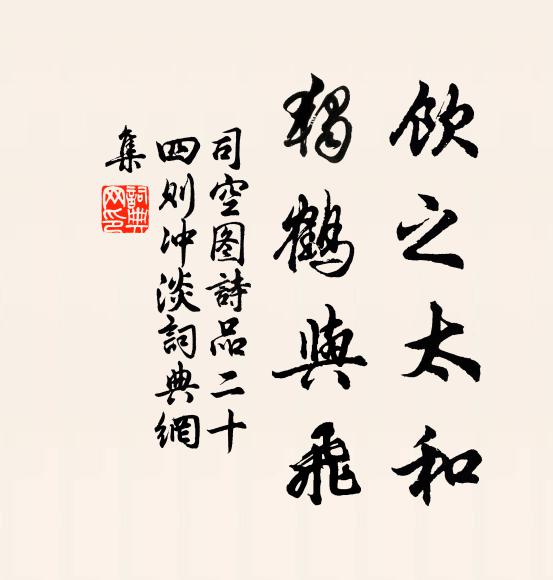 飲之太和
獨鶴與飛
司空图詩品二十
四则沖淡詞典網
集
詞典
网印